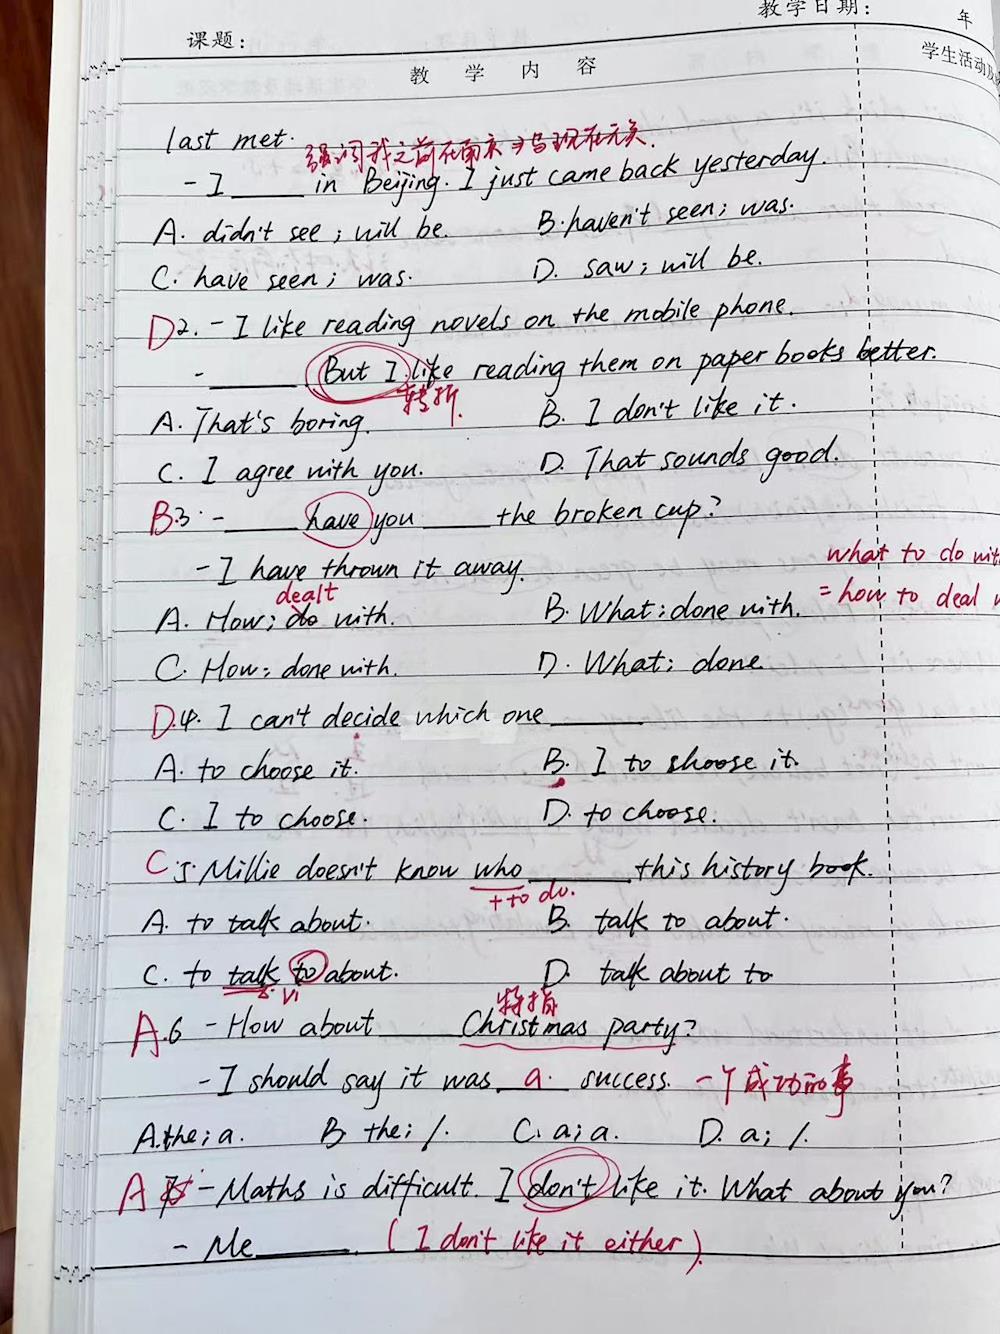 教学日期: 年
课题:
教 学 内 容 学生活动及
last met.
强调我之前在南京→与现在无关.
- I ____ in Beijing. I just came back yesterday.
A. didn't see ; will be. B. haven't seen ; was.
C. have seen ; was. D. saw ; will be.
D 2. - I like reading novels on the mobile phone.
- ____ But I like reading them on paper books better.
转折.
A. That's boring. B. I don't like it.
C. I agree with you. D. That sounds good.
B 3. - ____ have you ____ the broken cup?
- I have thrown it away. what to do wit
dealt = how to deal w
A. How; do with. B. What; done with.
C. How; done with. D. What; done
D. 4. I can't decide which one ____
A. to choose it. B. I to shoose it.
C. I to choose. D. to choose.
C 5. Millie doesn't know who ____ this history book.
+ to do.
A. to talk about. B. talk to about.
C. to talk to about. D. talk about to
vi 特指
A. 6 - How about Christmas party?
- I should say it was a success. 一个成功的事
A. the; a. B. the; /. C. a; a. D. a; /.
A - Maths is difficult. I don't like it. What about you?
- Me ____. (I don't like it either).